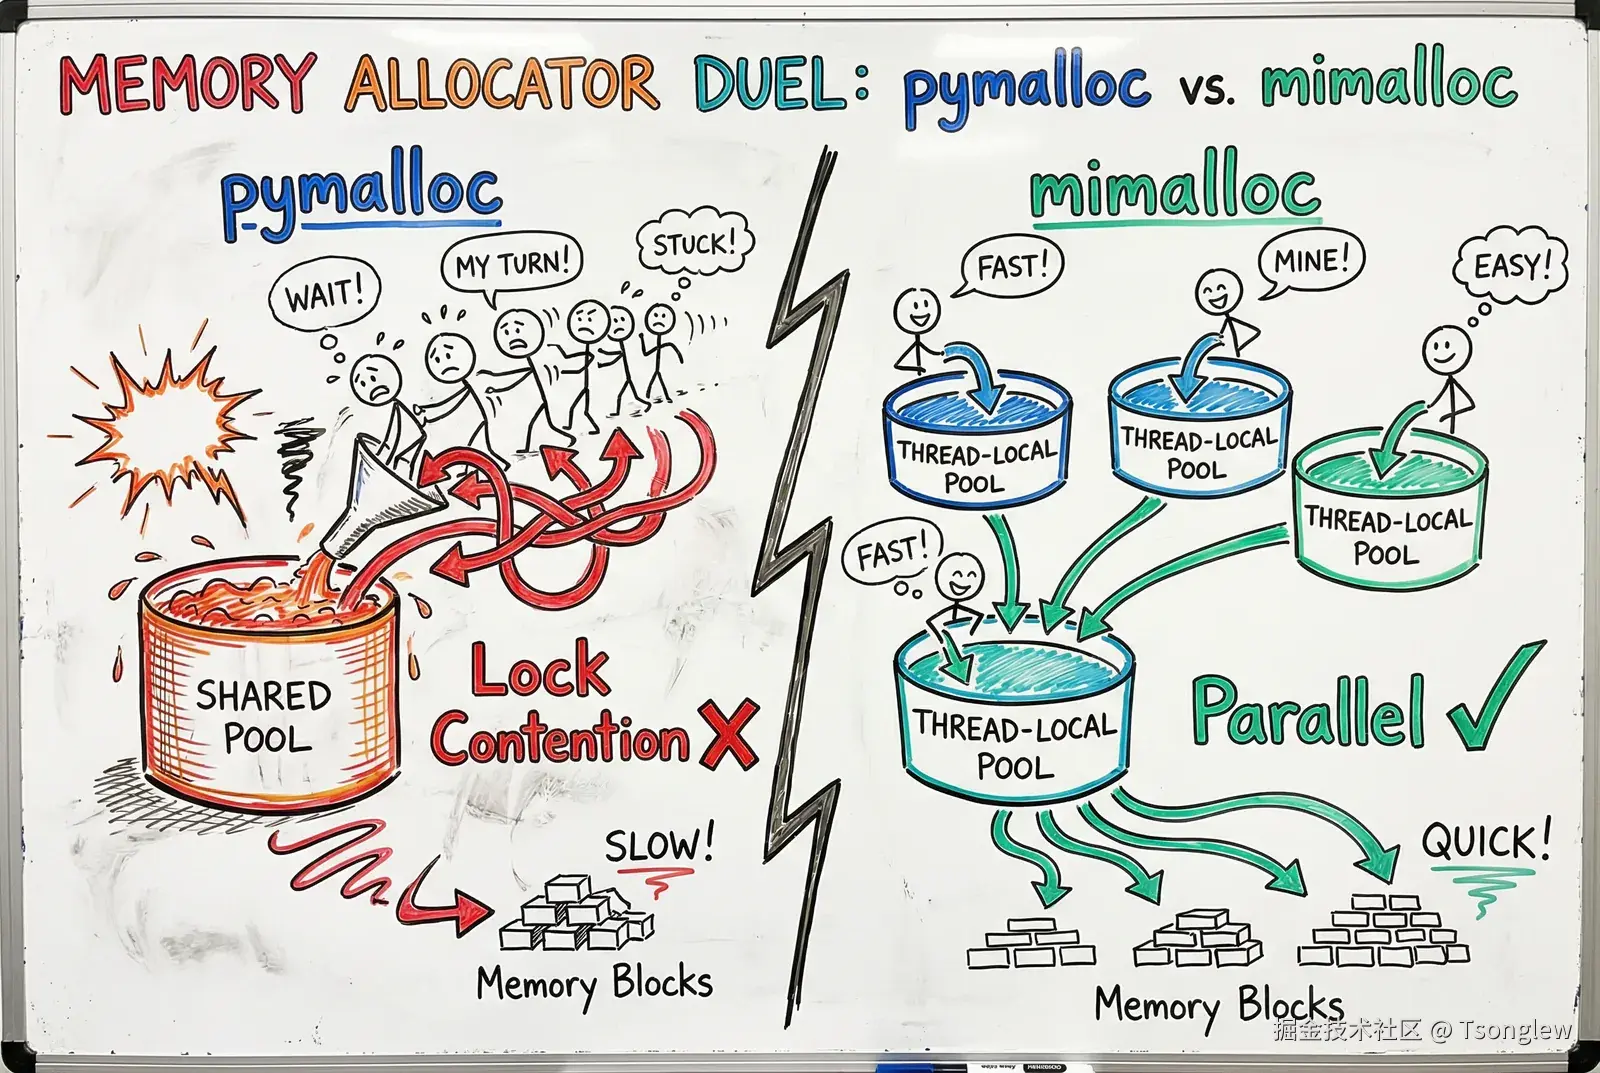 MEMORY ALLOCATOR DUEL: pymalloc vs. mimalloc
pymalloc
WAIT!
MY TURN!
STUCK!
SHARED
POOL
Lock
Contention
SLOW!
Memory Blocks
mimalloc
FAST!
MINE!
EASY!
THREAD-LOCAL
POOL
THREAD-LOCAL
POOL
THREAD-LOCAL
POOL
FAST!
THREAD-LOCAL
POOL
Parallel
QUICK!
Memory Blocks
掘金技术社区 @ Tsonglew